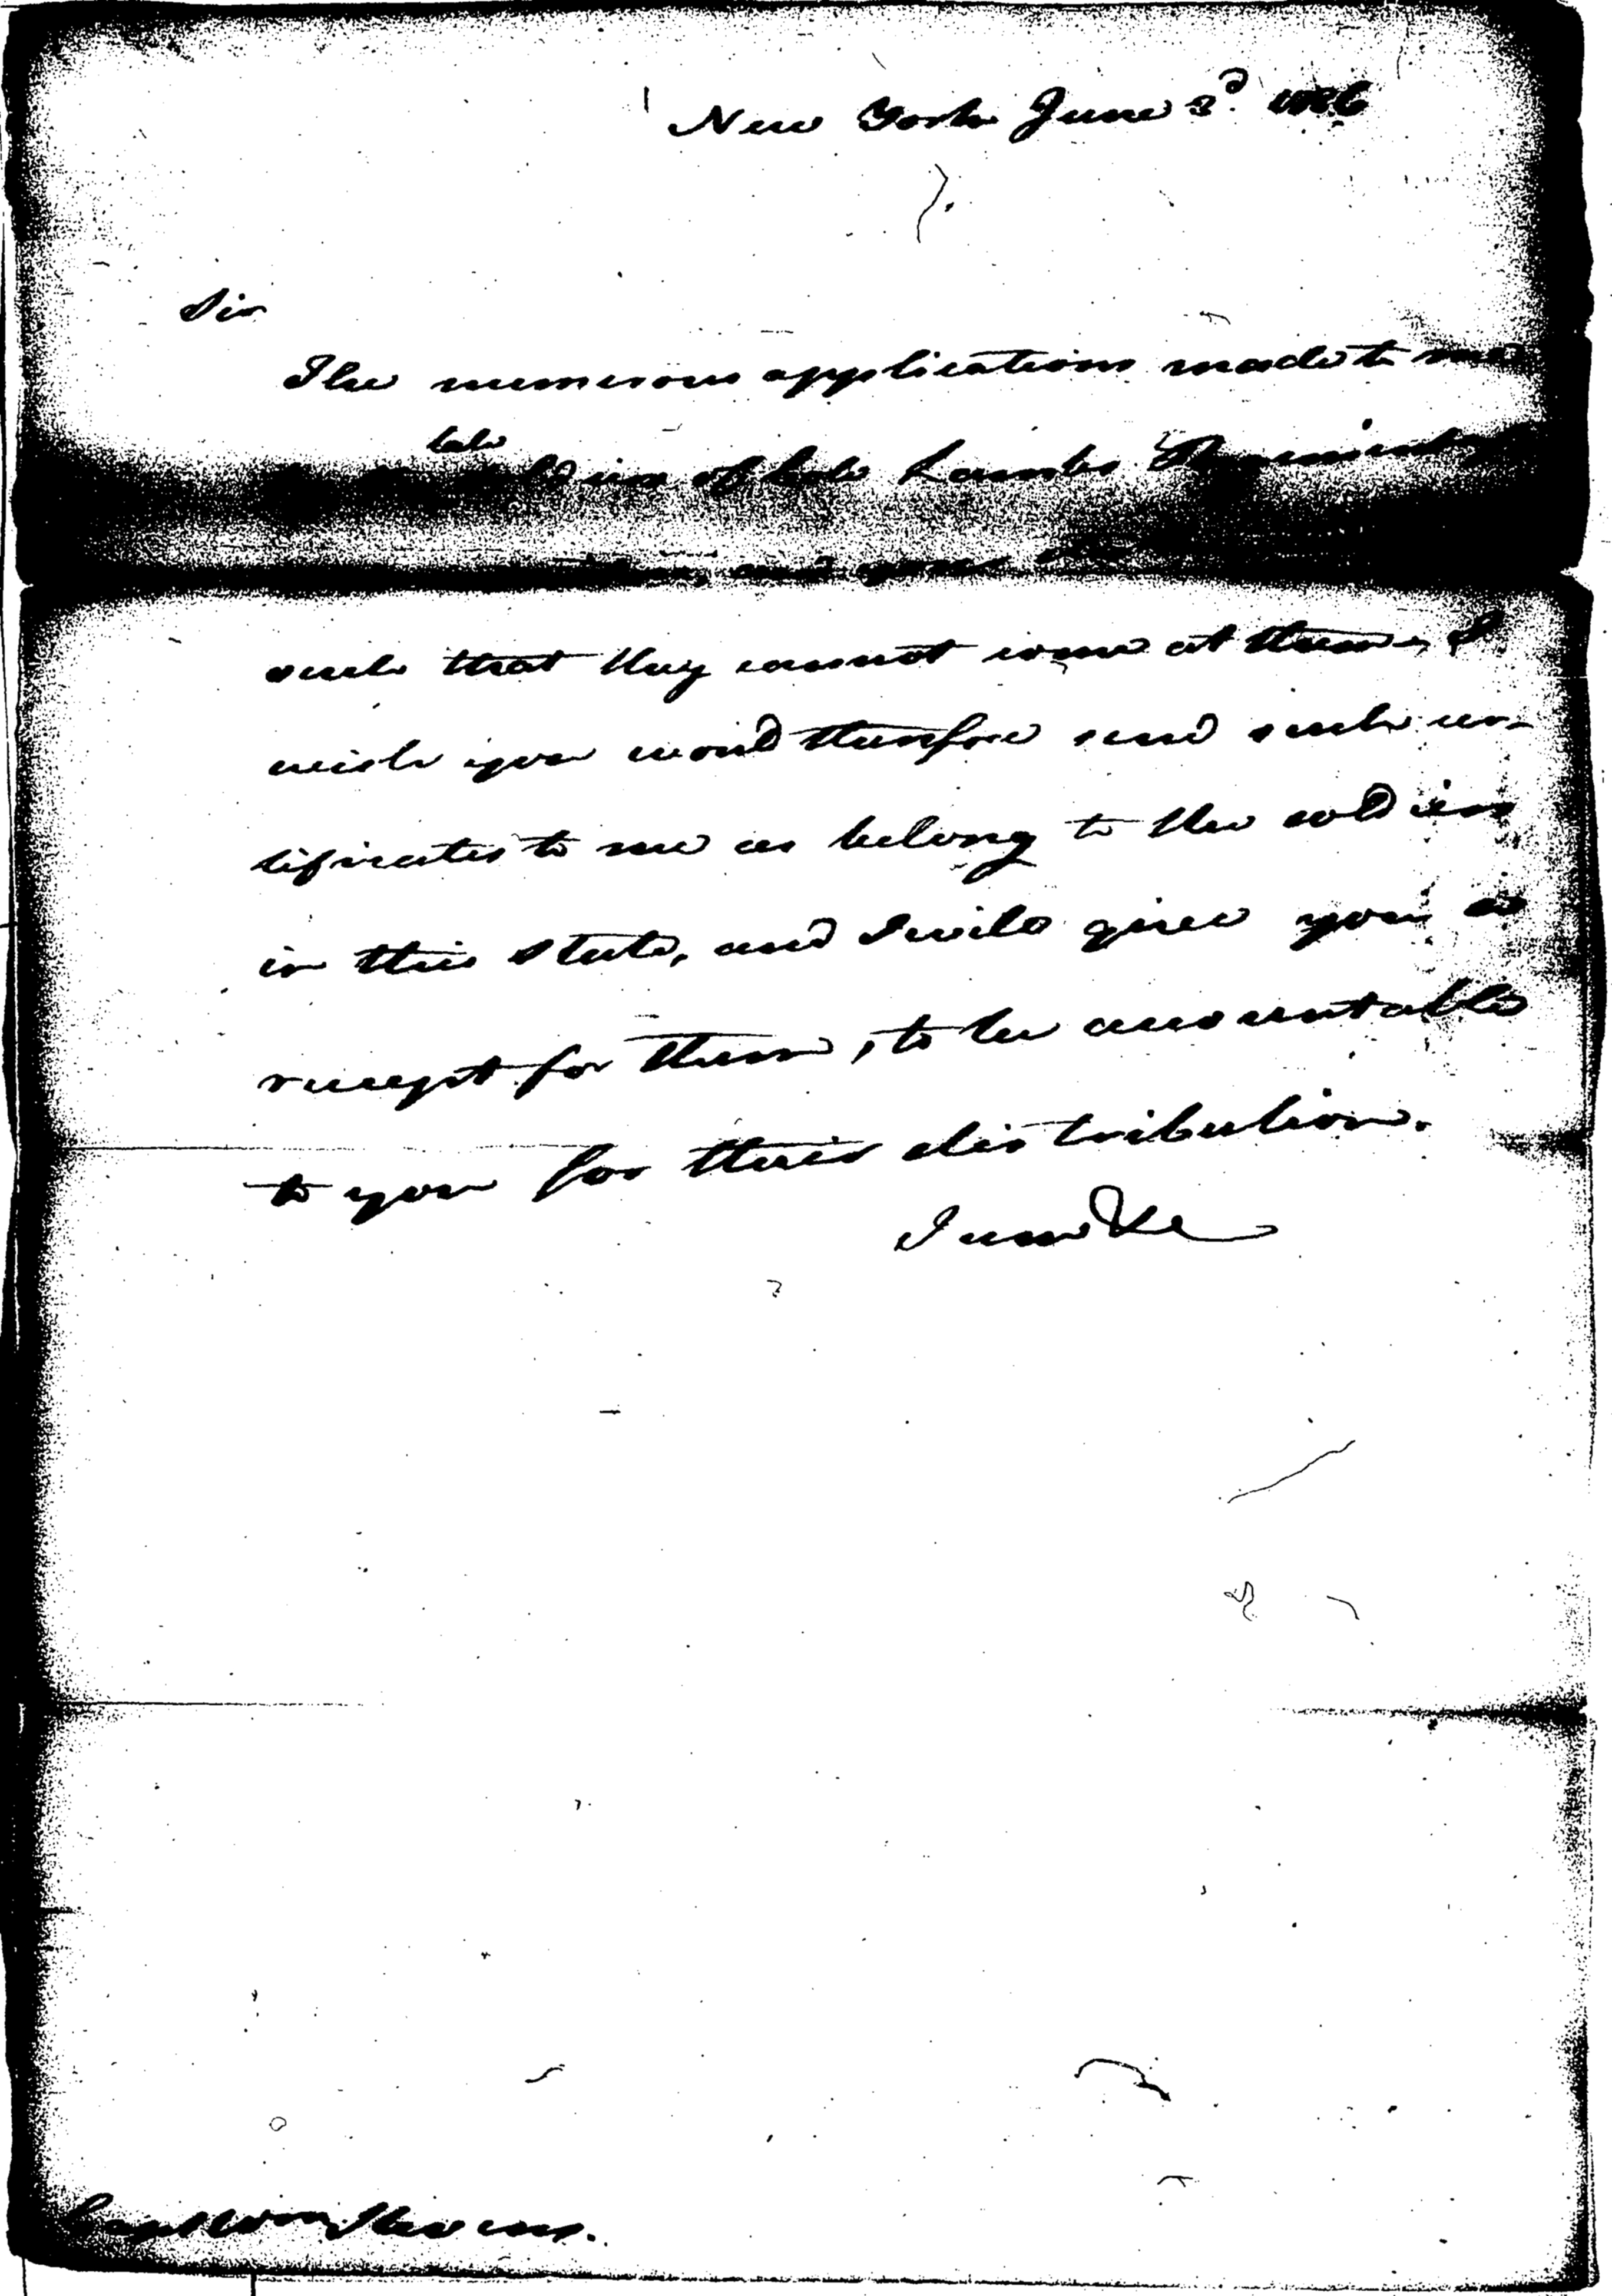 New York June 3d. 1786
Sir
The numerous applications made to me
late
soldiers of Col. Lambs Regiment,
and your
such that they cannot come at them, I
wish you would therefore send such cer-
tificates to me as belong to the soldiers
in this State, and I will give you a
receipt for them, to be accountable
to you for their distribution.
I am &c
Capt Wm Stevens.